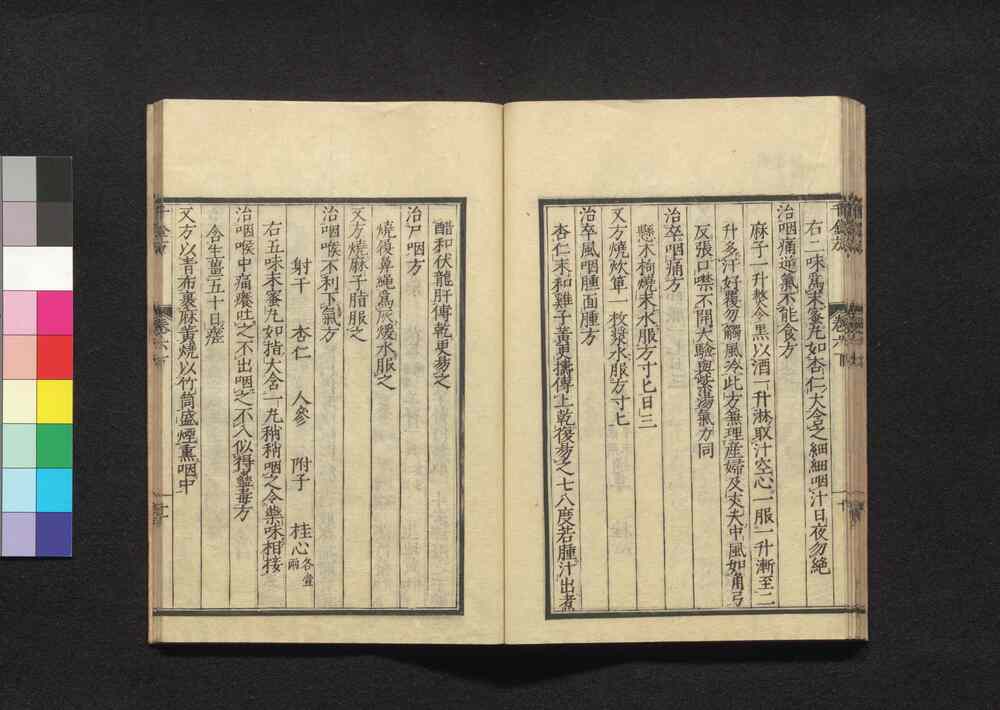 右二味爲末蜜丸如杏仁大含之細細咽汁日夜勿絶
治咽痛逆氣不能食方
麻子一升熬令黑以酒一升淋取汁空心一服一升漸至二
升多汗好覆勿觸風冷此方無理産婦及丈夫中風如角弓
反張口噤不開大驗與紫湯氣力同
治卒咽痛方
懸木枸燒末水服方寸匕日三
又方燒炊箄一枚漿水服方寸匕
治卒風咽腫面腫方
杏仁末和雞子黃更擣傅上乾復易之七八度若腫汁出煮
醋和伏龍肝傅乾更易之
治尸咽方
燒履鼻繩爲灰煖水服之
又方燒麻子脂服之
治咽喉不利下氣方
射干 杏仁 人參 附子 桂心各壹兩
右五味末蜜丸如指大含一丸稍稍咽之令藥味相接
治咽喉中痛癢吐之不出咽之不入似得蠱毒方
含生薑五十日瘥
又方以青布裹麻黃燒以竹筒盛煙熏咽中